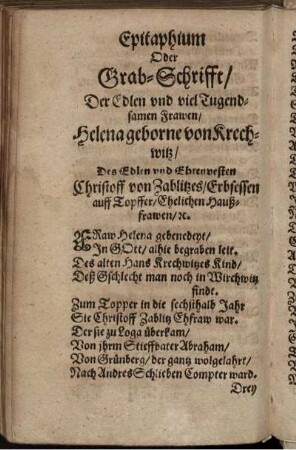 Epitaphium
Oder
Grab-Schrifft/
Der Edlen vnd viel Tugend-
samen Frawen/
Helena geborne von Krech-
witz/
Des Edlen vnd Ehrnvesten
Christoff von Zablitzes/Erbsessen
auff Topffer/Ehelichen Hauß-
frawen/ꝛc.
FRaw Helena gebenedeyt/
In GOtt/alhie begraben leit.
Des alten Hans Krechwitzes Kind/
Deß Gschlecht man noch in Wirchwitz
findt.
Zum Topper in die sechsthalb Jahr
Sie Christoff Zablitz Ehfraw war.
Der sie zu Loga überkam/
Von jhrm Stieffvater Abraham/
Von Grünberg/der gantz wolgelahrt/
Nach Andres Schlieben Compter ward.
Drey